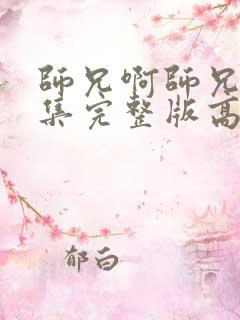 師兄啊師兄
集完整版高
郁白